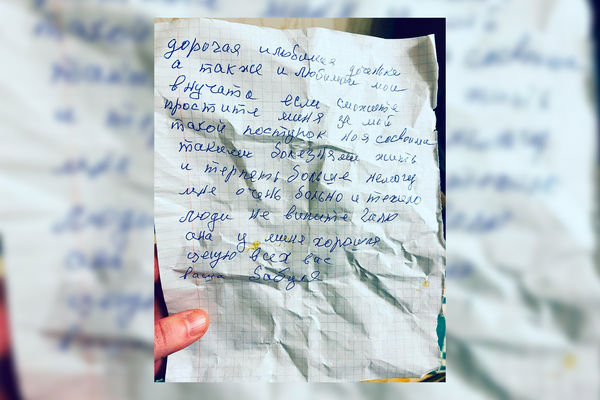 дорогая и любимая доченька
а также и любимые мои
внучата если сможете
простите меня за мой
такой поступок но я со своими
такими болезнями жить
и терпеть больше немогу
мне очень больно и тяжело
люди не вините Галю
она у меня хорошая
целую всех вас
ваша бабуля